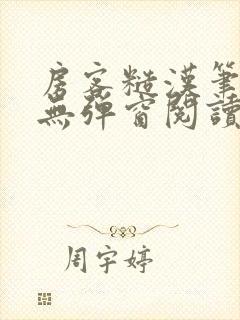 房客糙漢筆
無彈窗閱讀
周宇婷